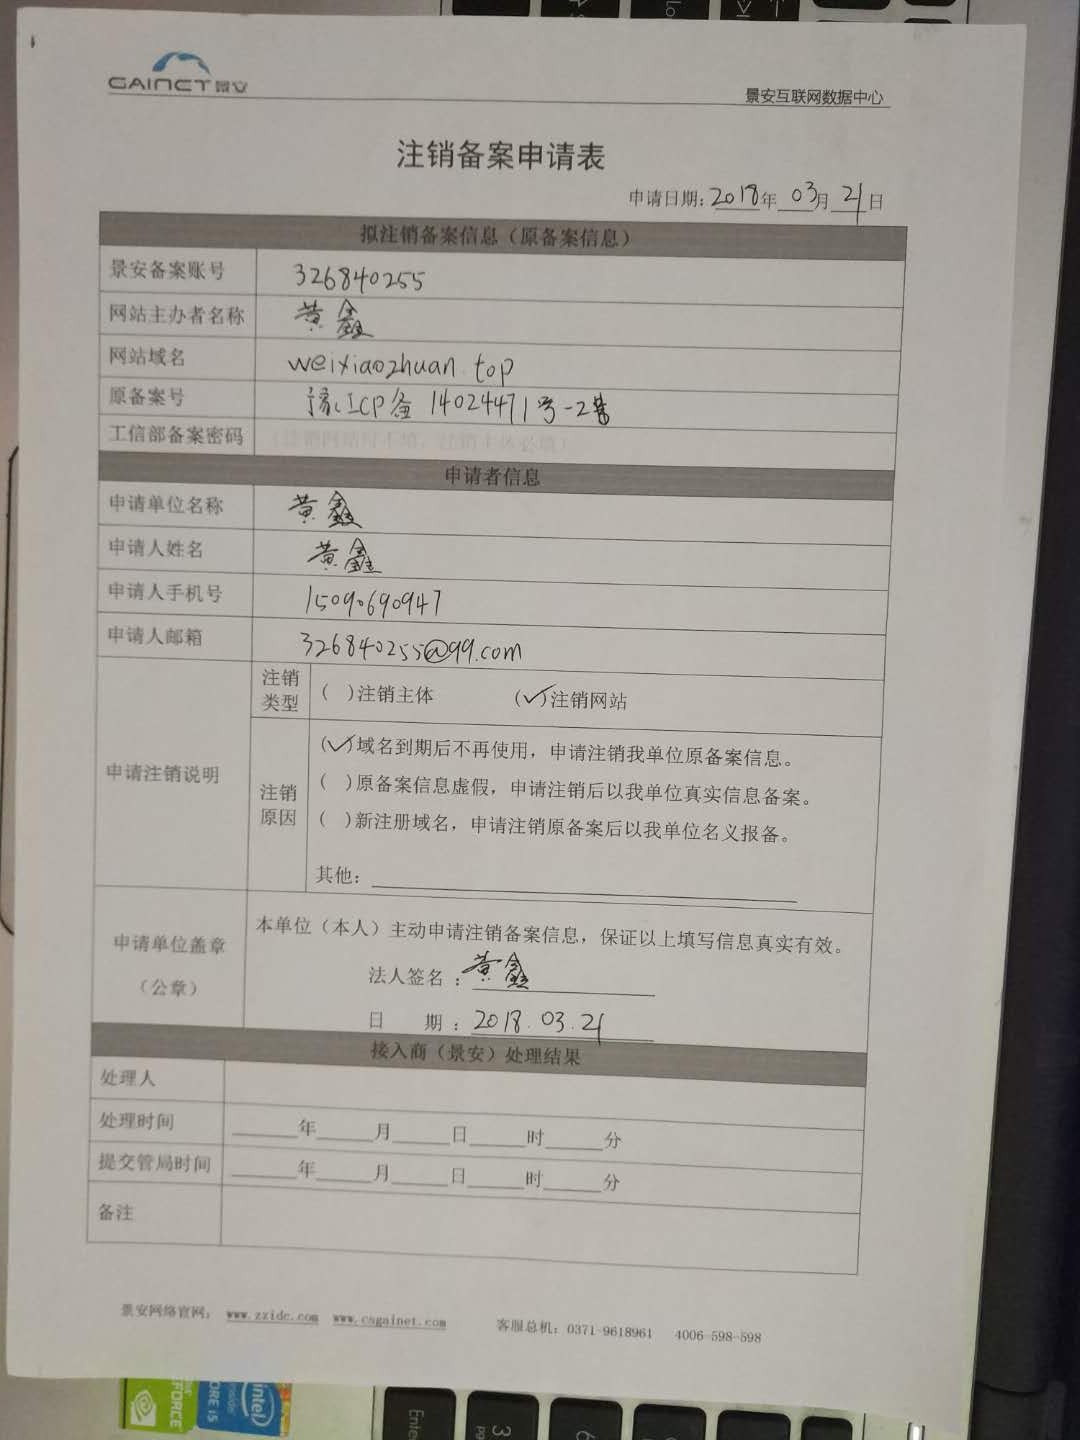 GAINET 景安
景安互联网数据中心
注销备案申请表
申请日期：2018年 03月 21日
拟注销备案信息（原备案信息）
景安备案账号 326840255
网站主办者名称 黄鑫
网站域名 weixiaozhuan.top
原备案号 豫ICP备 14024471号-2
工信部备案密码 （注销网站可不填，注销主体必填）
申请者信息
申请单位名称 黄鑫
申请人姓名 黄鑫
申请人手机号 15090690947
申请人邮箱 326840255@qq.com
申请注销说明
注销类型 （ ）注销主体 （✓）注销网站
注销原因
（✓）域名到期后不再使用，申请注销我单位原备案信息。
（ ）原备案信息虚假，申请注销后以我单位真实信息备案。
（ ）新注册域名，申请注销原备案后以我单位名义报备。
其他：
申请单位盖章
（公章）
本单位（本人）主动申请注销备案信息，保证以上填写信息真实有效。
法人签名：黄鑫
日 期：2018.03.21
接入商（景安）处理结果
处理人
处理时间 ____年____月____日____时____分
提交管局时间 ____年____月____日____时____分
备注
景安网络官网： www.zzidc.com www.csgainet.com 客服总机：0371-9618961 4006-598-598
intel
inside
CORE i5
GEFORCE
Enter
3
6